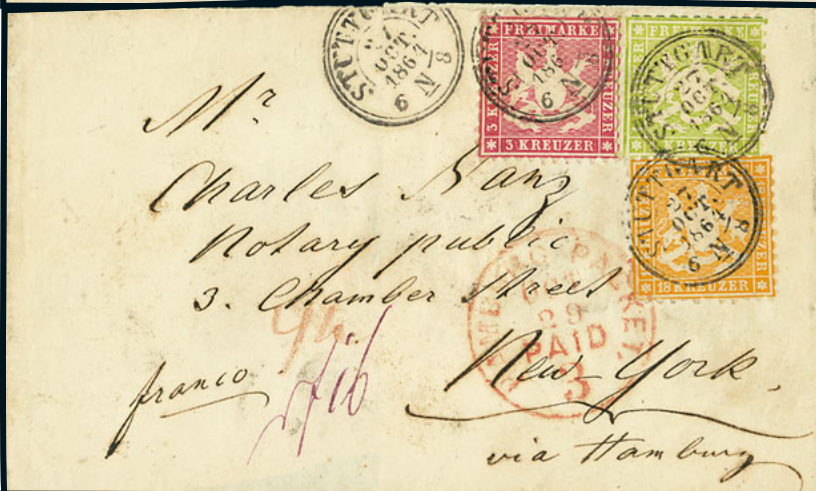 STUTTGART
27
OCT.
1864
6 N 8
FREIMARKE
3 KREUZER
KREUZER
STUTTGART
OCT.
186
6 N 8
FREI
KREUZER
KREUZER
STUTTGART
27
OCT
186
N 8
STUTTGART
27
OCT.
1864
6 N 8
18 KREUZER
Mr
Charles Kanz
Notary public
3. Chamber Street
New-York.
via Hamburg
franco
PACKET.
29
PAID
3